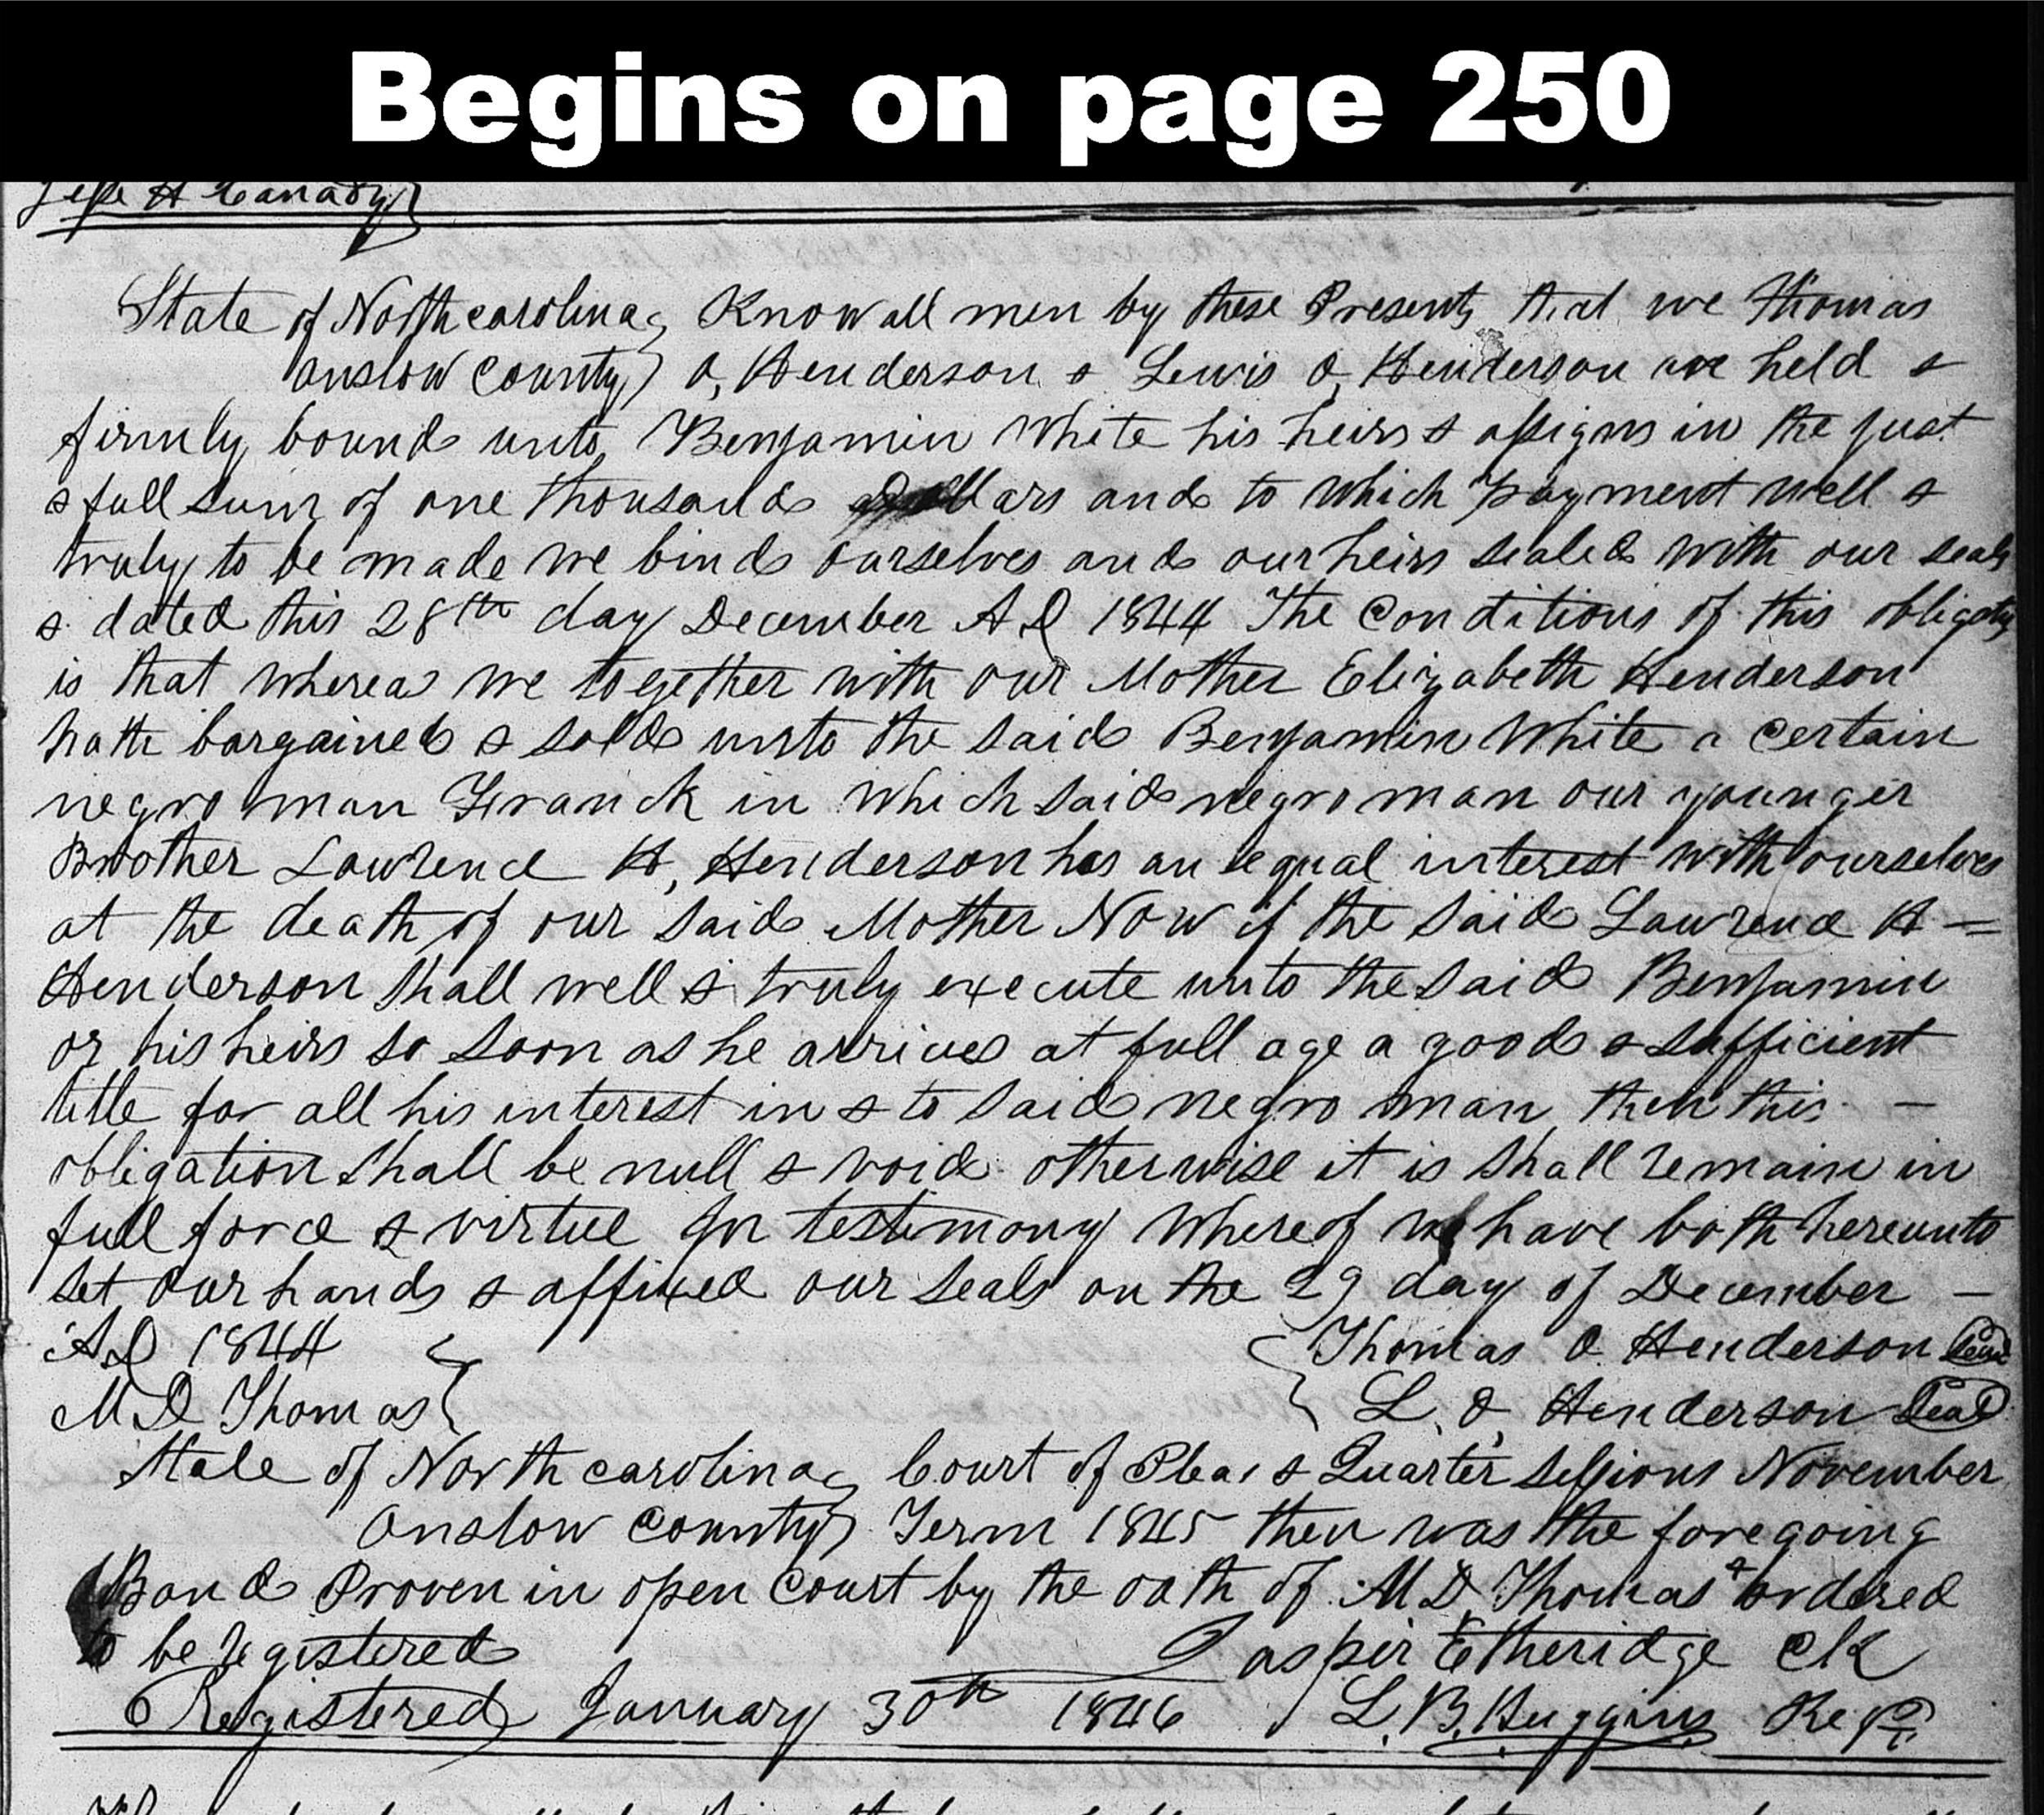 Begins on page 250
Jesse H Canady
State of North carolina Know all men by these Presents that we Thomas
Onslow County O, Henderson & Lewis O, Henderson are held &
firmly bound unto Benjamin White his heirs & assigns in the just
& full sum of one thousand dollars and to which payment well &
truly to be made we bind ourselves and our heirs sealed with our seals
& dated this 28th day December AD 1844 The Conditions of this obligation
is that whereas we together with our Mother Elizabeth Henderson
hath bargained & sold unto the said Benjamin White a certain
negro man Franck in which said negro man our younger
Brother Lawrence H, Henderson has an equal interest with ourselves
at the death of our said Mother Now if the said Lawrence H =
Henderson shall well & truly execute unto the said Benjamin
or his heirs so soon as he arrives at full age a good & sufficient
title for all his interest in & to said negro man then this -
obligation shall be null & void otherwise it is shall remain in
full force & virtue In testimony whereof we have both hereunto
set our hands & affixed our seals on the 29 day of December -
AD 1844 Thomas O Henderson Seal
M D Thomas L. O Henderson Seal
State of North carolina Court of Pleas & Quarter Sessions November
Onslow County Term 1845 then was the foregoing
Bond Proven in open Court by the oath of M D Thomas & ordered
to be registered Jasper Etheridge Clk
Registered January 30th 1846 L. B. Huggins Regr